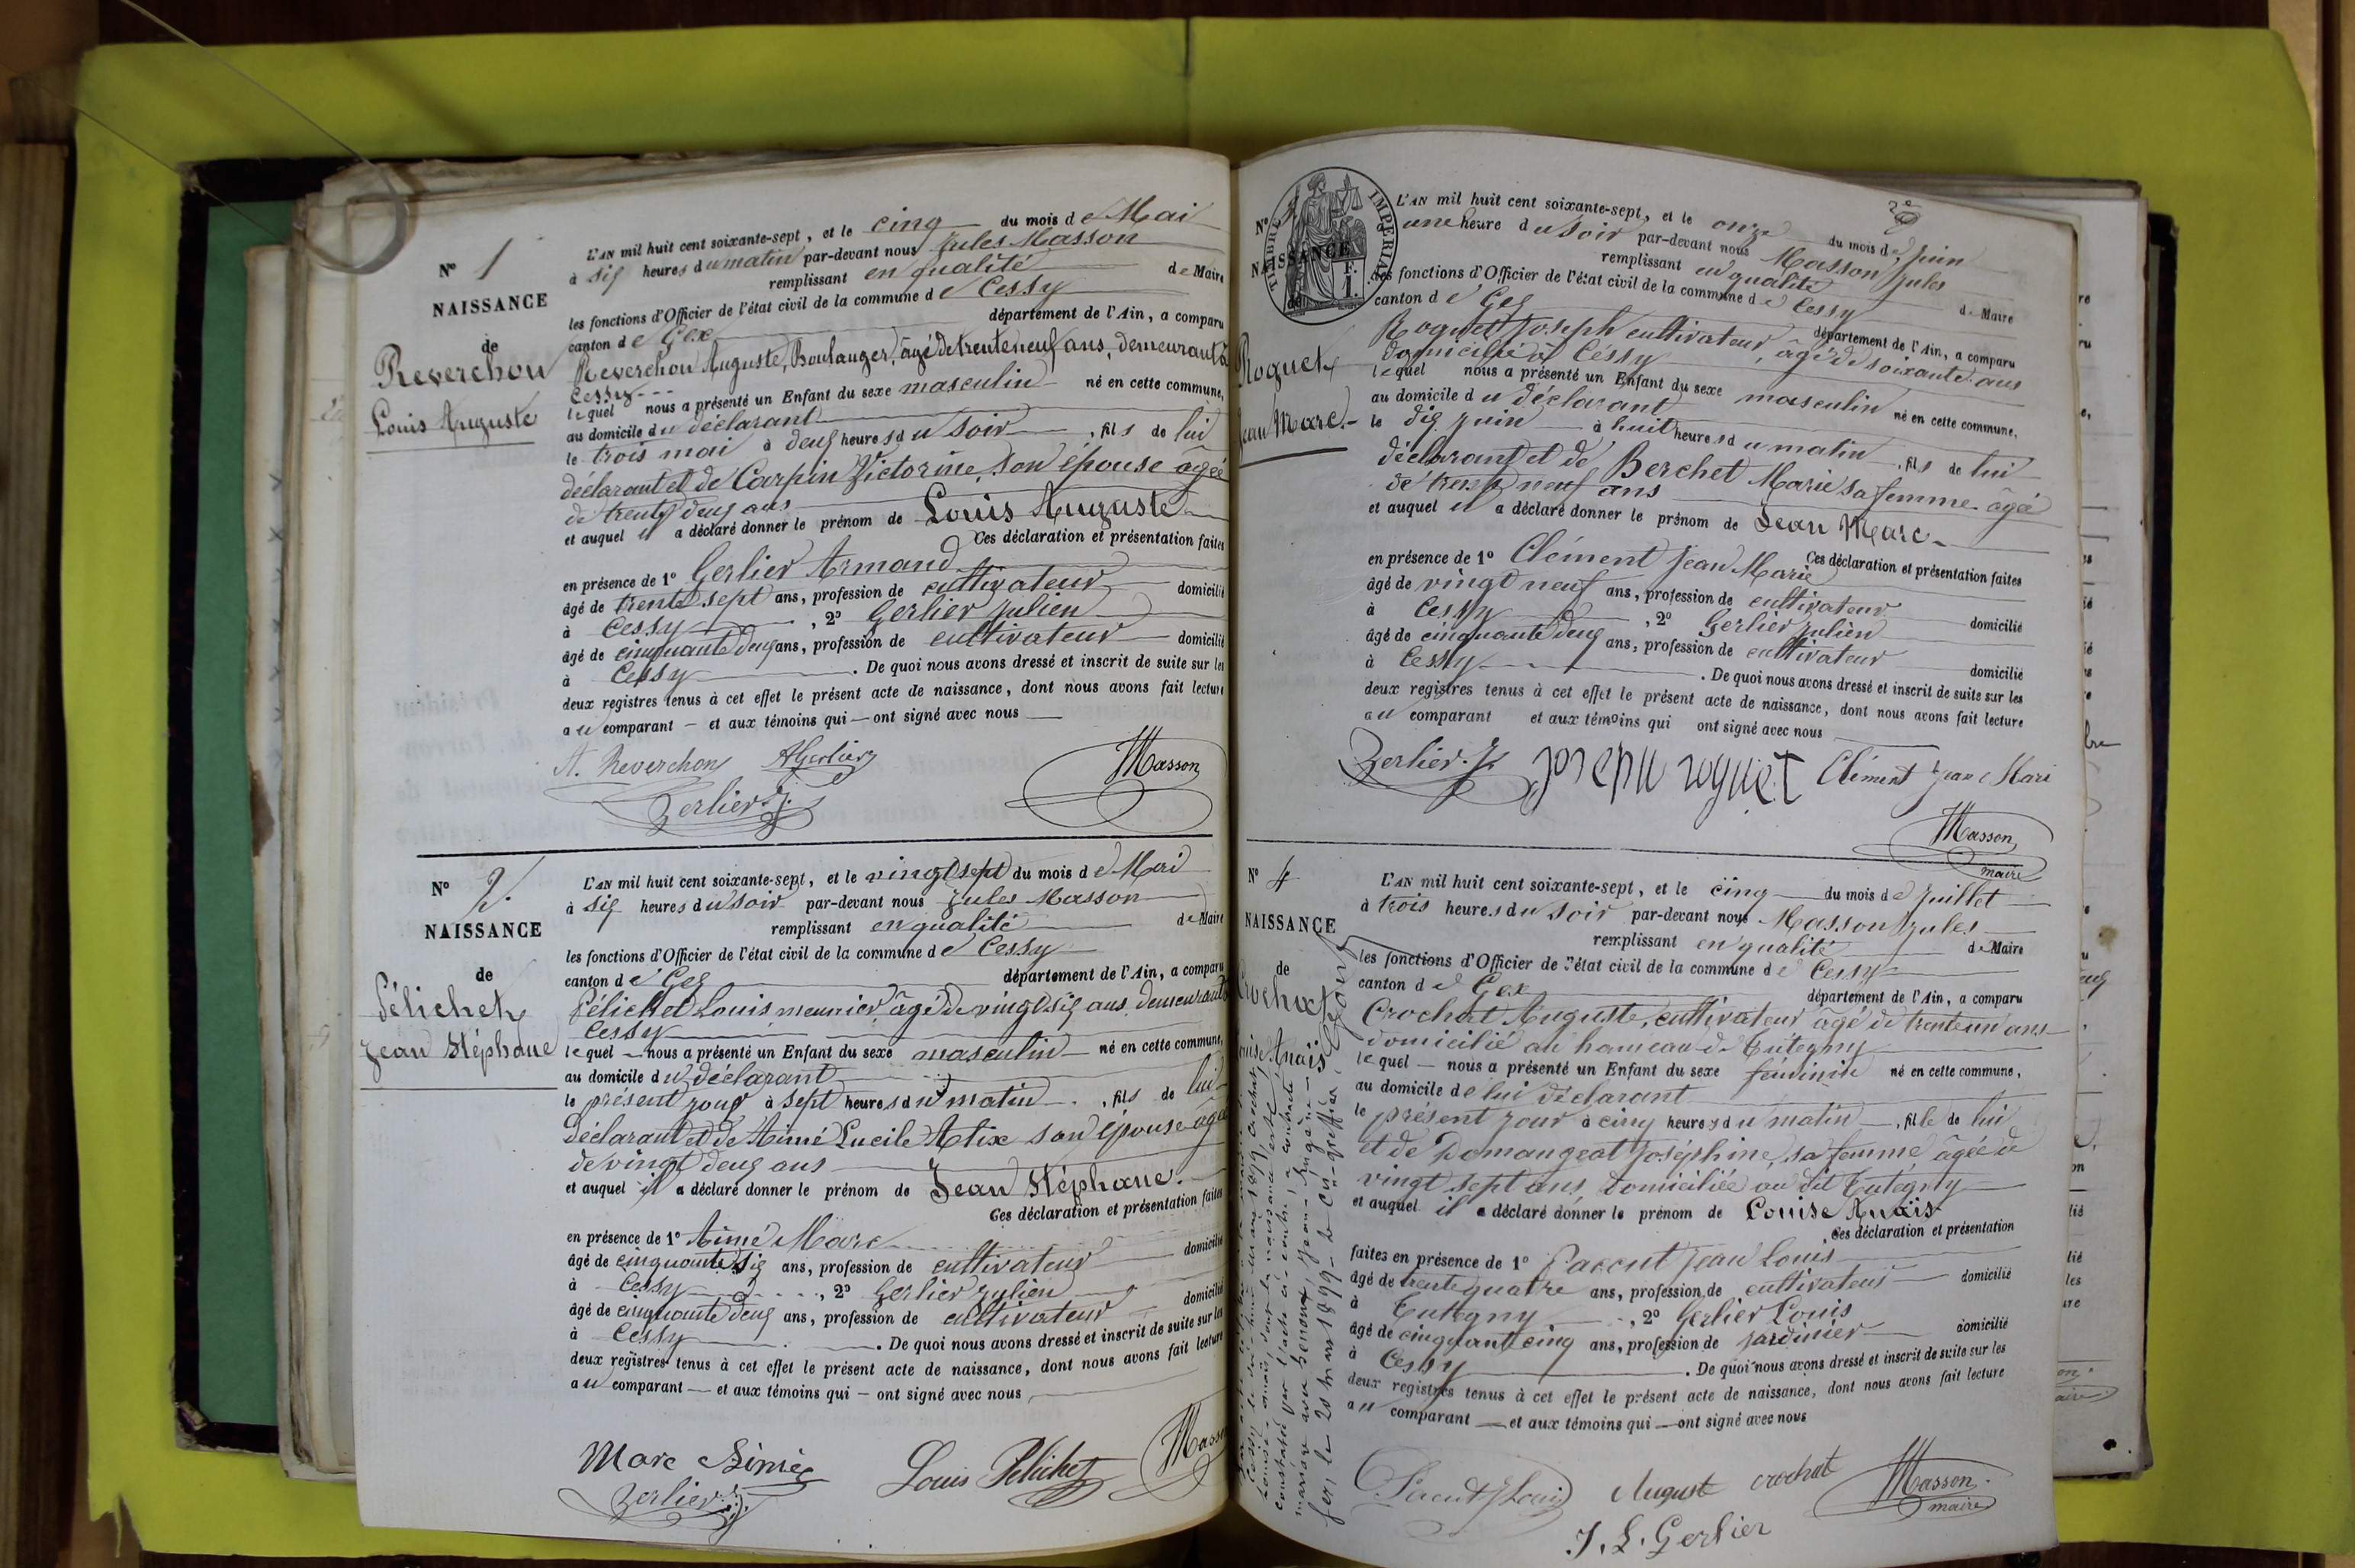 N° 1
NAISSANCE
de
Reverchon
Louis Auguste
L'AN mil huit cent soixante-sept, et le cinq du mois de Mai
à six heures du matin par-devant nous Jules Masson
remplissant en qualité de Maire
les fonctions d'Officier de l'état civil de la commune de Cessy
canton de Gex département de l'Ain, a comparu
Reverchon Auguste, Boulanger, âgé de trente neuf ans, demeurant à
Cessy
lequel nous a présenté un Enfant du sexe masculin né en cette commune,
au domicile du déclarant
le trois mai à deux heures du soir, fils de lui
déclarant et de Carpin Victorine, son épouse âgée
de trente deux ans
et auquel il a déclaré donner le prénom de Louis Auguste
Ces déclaration et présentation faites
en présence de 1° Gerlier Armand
âgé de trente sept ans, profession de cultivateur domicilié
à Cessy, 2° Gerlier Julien
âgé de cinquante deux ans, profession de cultivateur domicilié
à Cessy. De quoi nous avons dressé et inscrit de suite sur les
deux registres tenus à cet effet le présent acte de naissance, dont nous avons fait lecture
au comparant — et aux témoins qui — ont signé avec nous
A. Reverchon AGerlier Masson
Gerlier. J.
N° 2.
NAISSANCE
de
Pélichet
Jean Stéphane
L'AN mil huit cent soixante-sept, et le vingt sept du mois de Mai
à six heures du soir par-devant nous Jules Masson
remplissant en qualité de Maire
les fonctions d'Officier de l'état civil de la commune de Cessy
canton de Gex département de l'Ain, a comparu
Pélichet Louis meunier âgé de vingt six ans demeurant à
Cessy
lequel — nous a présenté un Enfant du sexe masculin — né en cette commune,
au domicile du déclarant
le présent jour à sept heures du matin, fils de lui
déclarant et de Aimé Lucile Alix son épouse âgée
de vingt deux ans
et auquel il a déclaré donner le prénom de Jean Stéphane.
Ces déclaration et présentation faites
en présence de 1° Aimé Marc
âgé de cinquante six ans, profession de cultivateur domicilié
à Cessy, 2° Gerlier Julien
âgé de cinquante deux ans, profession de cultivateur domicilié
à Cessy. De quoi nous avons dressé et inscrit de suite sur les
deux registres tenus à cet effet le présent acte de naissance, dont nous avons fait lecture
au comparant — et aux témoins qui — ont signé avec nous
Marc Aimé Louis Pélichet Masson
Gerlier. J.
TIMBRE IMPÉRIAL
F.
1.
N°
NAISSANCE
de
Roquet
Jean Marc.
L'AN mil huit cent soixante-sept, et le onze du mois de juin
à une heure du soir par-devant nous Masson Jules
remplissant en qualité de Maire
les fonctions d'Officier de l'état civil de la commune de Cessy
canton de Gex département de l'Ain, a comparu
Roquet Joseph cultivateur, âgé de soixante ans
domicilié à Cessy
lequel nous a présenté un Enfant du sexe masculin né en cette commune,
au domicile du déclarant
le dix juin à huit heures du matin, fils de lui
déclarant et de Berchet Marie sa femme âgée
de trente neuf ans
et auquel il a déclaré donner le prénom de Jean Marc
Ces déclaration et présentation faites
en présence de 1° Clément Jean Marie
âgé de vingt neuf ans, profession de cultivateur domicilié
à Cessy, 2° Gerlier Julien
âgé de cinquante deux ans, profession de cultivateur domicilié
à Cessy. De quoi nous avons dressé et inscrit de suite sur les
deux registres tenus à cet effet le présent acte de naissance, dont nous avons fait lecture
au comparant et aux témoins qui ont signé avec nous
Gerlier. J. joseph roquet Clément Jean Mari
Masson
maire
N° 4
NAISSANCE
de
Crochat
Louise Anaïs
L'AN mil huit cent soixante-sept, et le cinq du mois de juillet
à trois heures du soir par-devant nous Masson Jules
remplissant en qualité de Maire
les fonctions d'Officier de l'état civil de la commune de Cessy
canton de Gex département de l'Ain, a comparu
Crochat Auguste, cultivateur âgé de trente un ans
domicilié au hameau de Tutegny
lequel — nous a présenté un Enfant du sexe féminin né en cette commune,
au domicile de lui déclarant
le présent jour à cinq heures du matin, fille de lui
et de Domangeat Joséphine, sa femme âgée de
vingt sept ans, domiciliée au dit Tutegny
et auquel il a déclaré donner le prénom de Louise Anaïs
Ces déclaration et présentation
faites en présence de 1° Pacout Jean Louis
âgé de trente quatre ans, profession de cultivateur domicilié
à Tutegny, 2° Gerlier Louis
âgé de cinquante cinq ans, profession de jardinier domicilié
à Cessy. De quoi nous avons dressé et inscrit de suite sur les
deux registres tenus à cet effet le présent acte de naissance, dont nous avons fait lecture
au comparant — et aux témoins qui — ont signé avec nous
August crochat Masson
maire
J. L. Gerlier